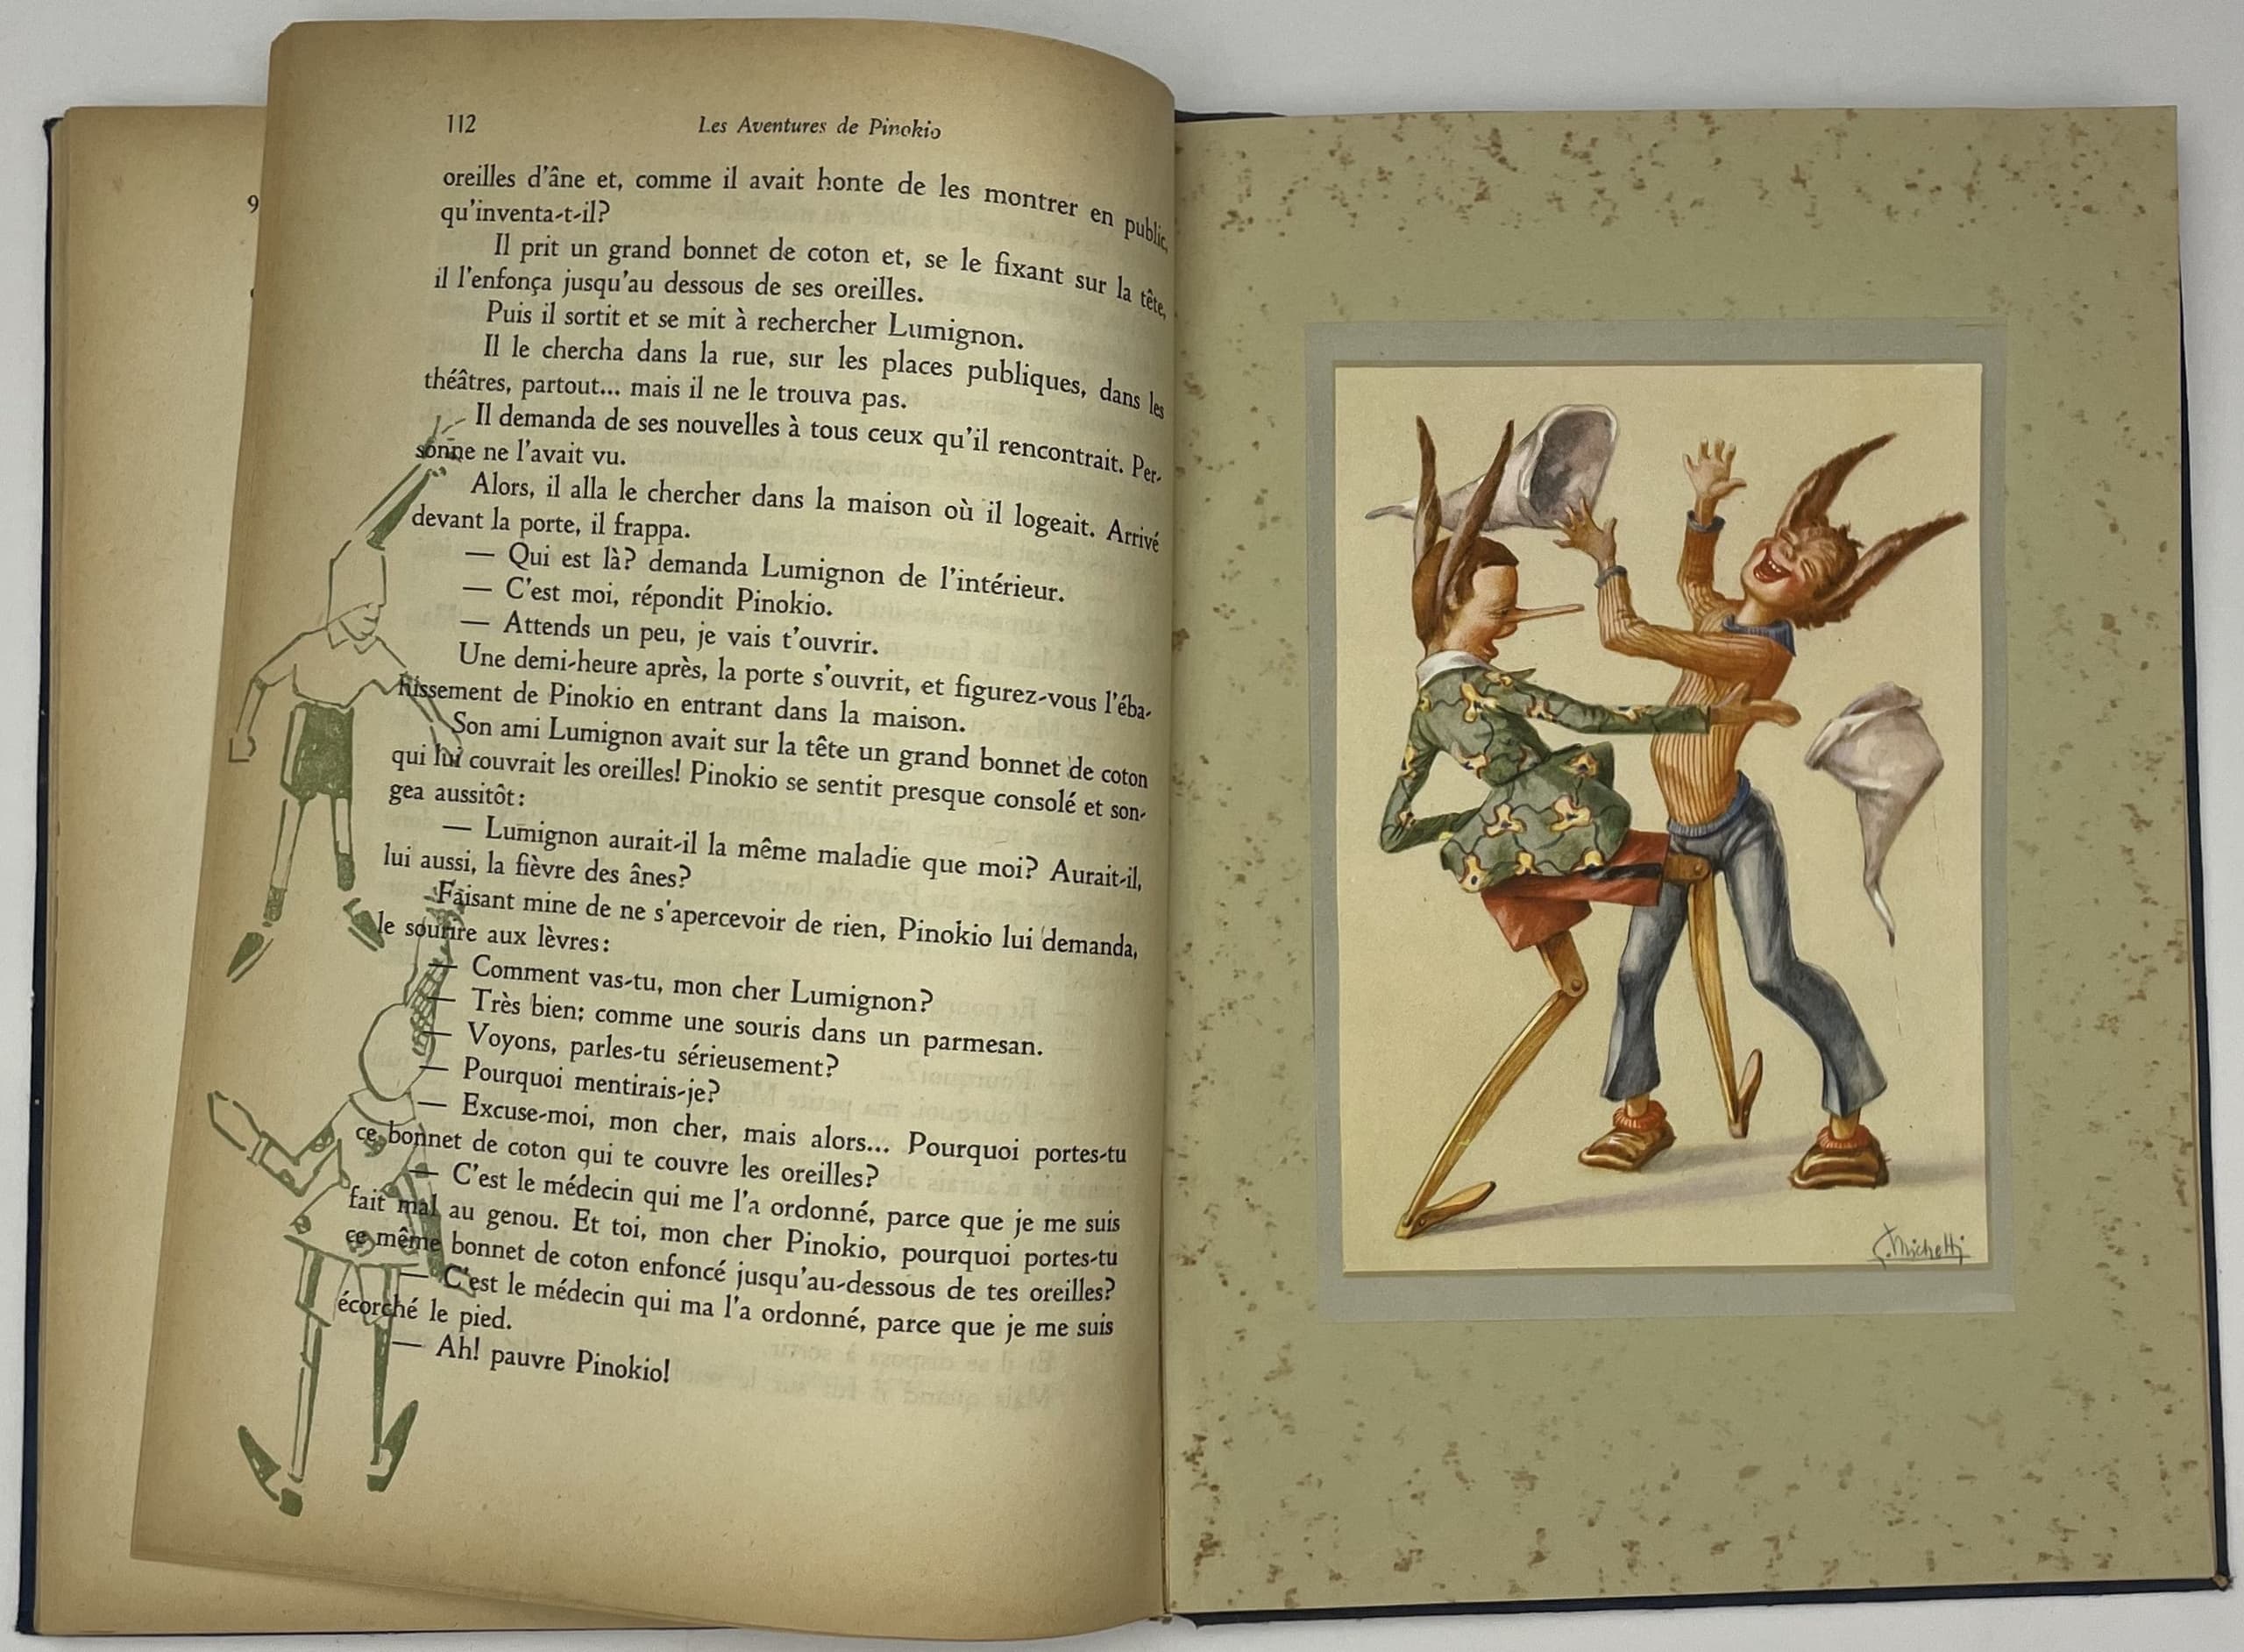 9
112 Les Aventures de Pinokio
oreilles d'âne et, comme il avait honte de les montrer en public,
qu'inventa-t-il?
Il prit un grand bonnet de coton et, se le fixant sur la tête,
il l'enfonça jusqu'au dessous de ses oreilles.
Puis il sortit et se mit à rechercher Lumignon.
Il le chercha dans la rue, sur les places publiques, dans les
théâtres, partout... mais il ne le trouva pas.
Il demanda de ses nouvelles à tous ceux qu'il rencontrait. Per-
sonne ne l'avait vu.
Alors, il alla le chercher dans la maison où il logeait. Arrivé
devant la porte, il frappa.
— Qui est là? demanda Lumignon de l'intérieur.
— C'est moi, répondit Pinokio.
— Attends un peu, je vais t'ouvrir.
Une demi-heure après, la porte s'ouvrit, et figurez-vous l'éba-
hissement de Pinokio en entrant dans la maison.
Son ami Lumignon avait sur la tête un grand bonnet de coton
qui lui couvrait les oreilles! Pinokio se sentit presque consolé et son-
gea aussitôt:
— Lumignon aurait-il la même maladie que moi? Aurait-il,
lui aussi, la fièvre des ânes?
Faisant mine de ne s'apercevoir de rien, Pinokio lui demanda,
le sourire aux lèvres:
— Comment vas-tu, mon cher Lumignon?
— Très bien; comme une souris dans un parmesan.
— Voyons, parles-tu sérieusement?
— Pourquoi mentirais-je?
— Excuse-moi, mon cher, mais alors... Pourquoi portes-tu
ce bonnet de coton qui te couvre les oreilles?
— C'est le médecin qui me l'a ordonné, parce que je me suis
fait mal au genou. Et toi, mon cher Pinokio, pourquoi portes-tu
ce même bonnet de coton enfoncé jusqu'au-dessous de tes oreilles?
— C'est le médecin qui ma l'a ordonné, parce que je me suis
écorché le pied.
— Ah! pauvre Pinokio!
Michetti